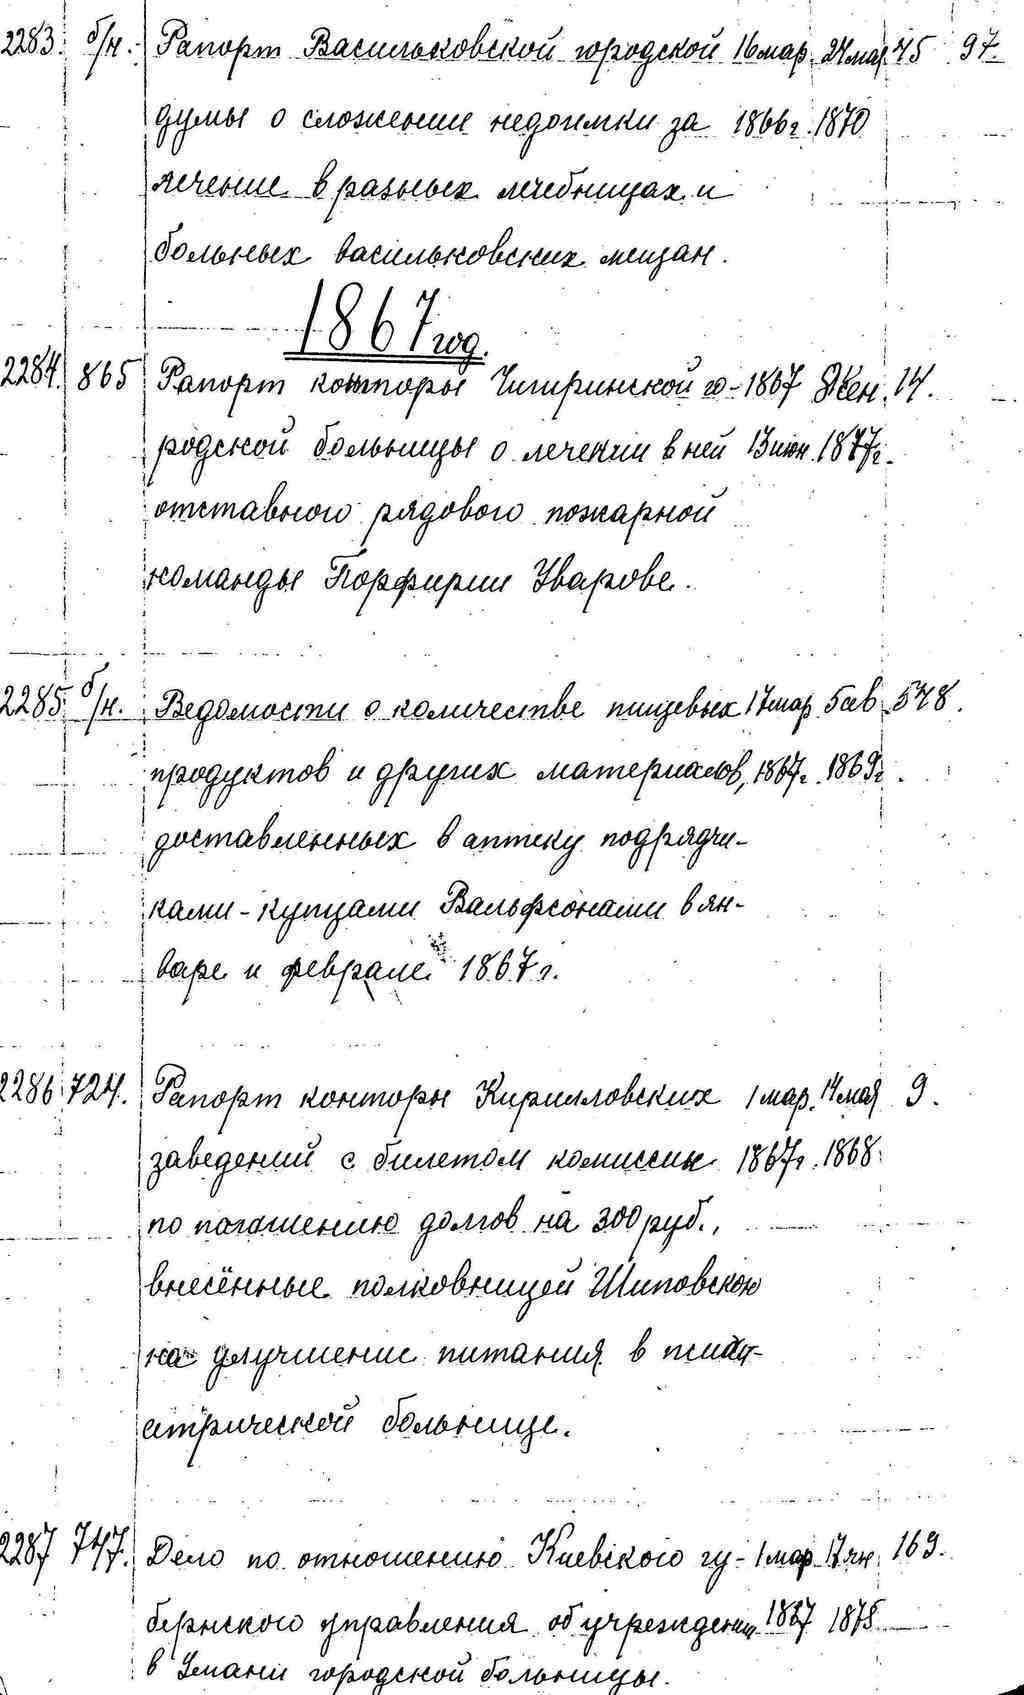 2283. б/н. Рапорт Васильковской городской 16 мар. 24 мая 45 97.
думы о сложении недоимки за 1866г. 1870
лечение в разных лечебницах и
больных васильковских мещан.
1867 год.
2284. 865 Рапорт конторы Чигиринской го- 1867 14.
родской больницы о лечении в ней 13 июн. 1877г.
отставного рядового пожарной
команды Порфирии Уварове.
2285 б/н. Ведомости о количестве пищевых 17 мар. 5 ав. 578.
продуктов и других материалов, 1867г. 1869г.
доставленных в аптеку подрядчи-
ками-купцами Вальфсонами в ян-
варе и феврале 1867г.
2286 724. Рапорт конторы Кирилловских 1 мар. 14 мая 9.
заведений с билетом комиссии 1867г. 1868
по погашению долгов на 300 руб.,
внесённые полковницей Шиповскою
на улучшение питания в психи-
атрической больнице.
2287 747. Дело по отношению Киевского гу- 1 мар. 17 ян. 169.
бернского управления об учреждении 1867 1878
в Умани городской больницы.